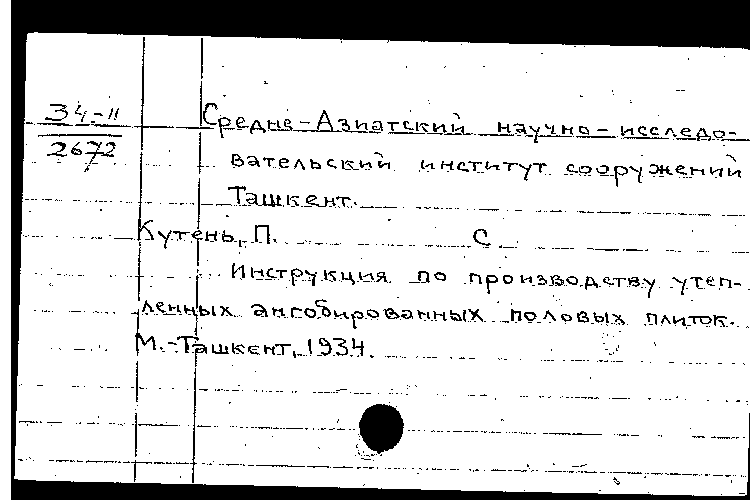 34-11
2672
Средне-Азиатский научно-исследо-
вательский институт сооружений
Ташкент.
Кутень, П. С
Инструкция по производству утеп-
ленных ангобированных половых плиток.
М.-Ташкент, 1934.